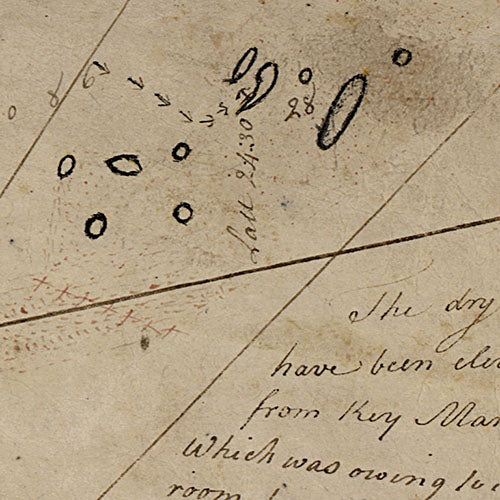 8
9
7
28
Latt 24:30
The dry
have been ele
from Key Mar
Which was owing to
room